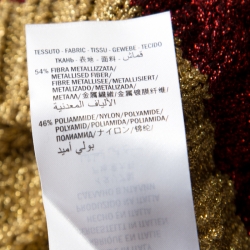 TESSUTO - FABRIC - TISSU - GEWEBE - TECIDO
ТКАНЬ - 表地 - 面料 - قماش
54% FIBRA METALLIZZATA/
METALLISED FIBER/
FIBRE METALLISEE/METALLISIERT/
METALIZADO/METALIZADA/
МЕТАЛЛ/金属繊維/金属纤维/
الألياف المعدنية
46% POLIAMMIDE/NYLON/POLYAMIDE/
POLYAMID/POLIAMIDA/POLIAMIDA/
ПОЛИАМИД/ナイロン/锦纶/
بولي أميد